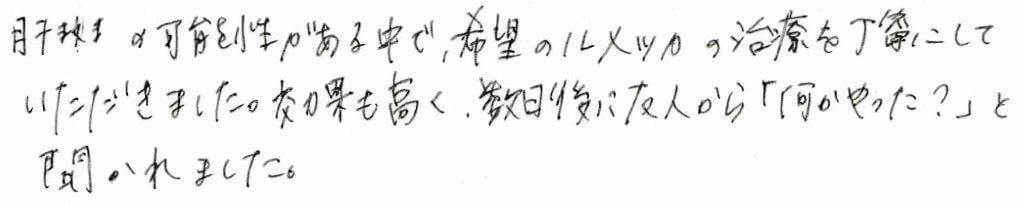 肝斑の可能性がある中で、希望のルメッカの治療を丁寧にして
いただきました。効果も高く、数日後に友人から「何かやった？」と
聞かれました。